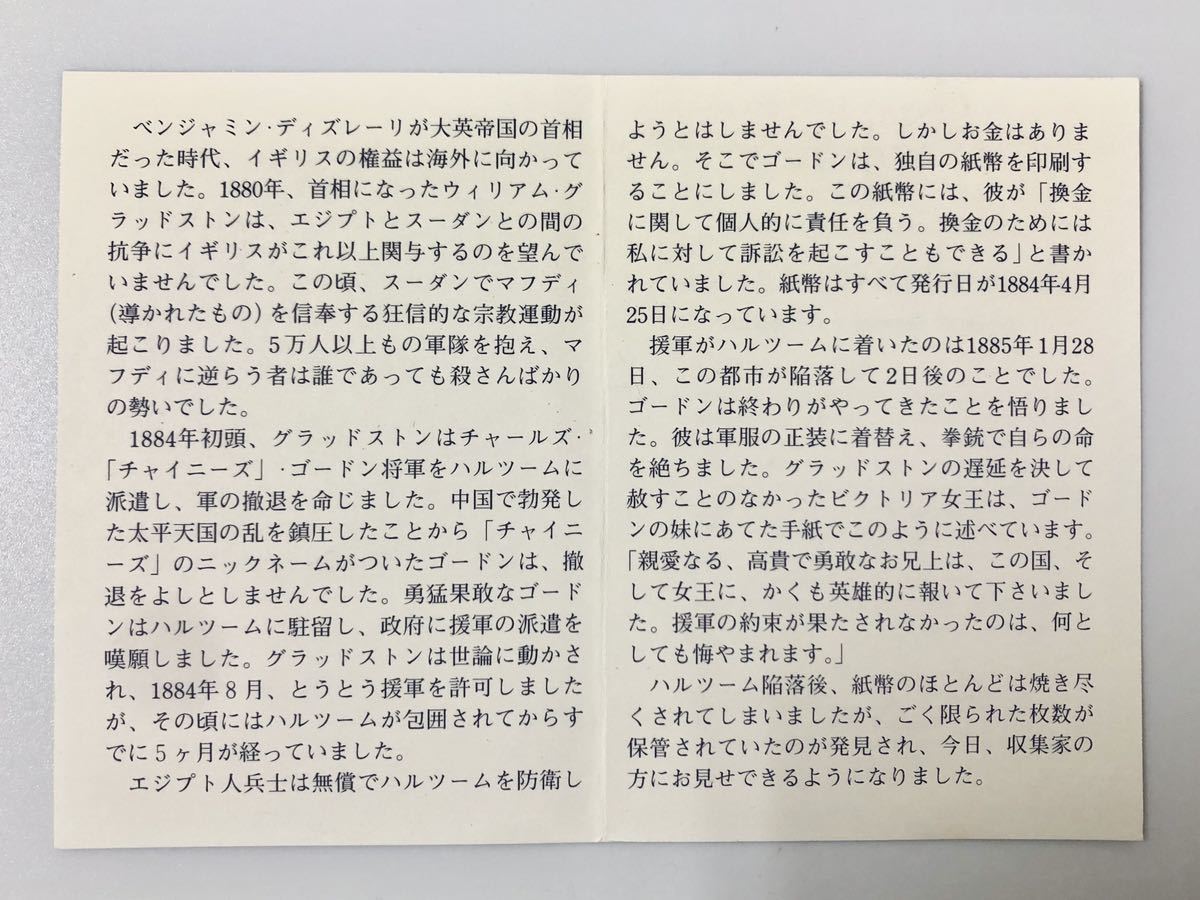 ベンジャミン・ディズレーリが大英帝国の首相
だった時代、イギリスの権益は海外に向かって
いました。1880年、首相になったウィリアム・グ
ラッドストンは、エジプトとスーダンとの間の
抗争にイギリスがこれ以上関与するのを望んで
いませんでした。この頃、スーダンでマフディ
(導かれたもの)を信奉する狂信的な宗教運動が
起こりました。5万人以上もの軍隊を抱え、マ
フディに逆らう者は誰であっても殺さんばかり
の勢いでした。
1884年初頭、グラッドストンはチャールズ・
「チャイニーズ」・ゴードン将軍をハルツームに
派遣し、軍の撤退を命じました。中国で勃発し
た太平天国の乱を鎮圧したことから「チャイニ
ーズ」のニックネームがついたゴードンは、撤
退をよしとしませんでした。勇猛果敢なゴード
ンはハルツームに駐留し、政府に援軍の派遣を
嘆願しました。グラッドストンは世論に動かさ
れ、1884年8月、とうとう援軍を許可しました
が、その頃にはハルツームが包囲されてからす
でに5ヶ月が経っていました。
エジプト人兵士は無償でハルツームを防衛し
ようとはしませんでした。しかしお金はありま
せん。そこでゴードンは、独自の紙幣を印刷す
ることにしました。この紙幣には、彼が「換金
に関して個人的に責任を負う。換金のためには
私に対して訴訟を起こすこともできる」と書か
れていました。紙幣はすべて発行日が1884年4月
25日になっています。
援軍がハルツームに着いたのは1885年1月28
日、この都市が陥落して2日後のことでした。
ゴードンは終わりがやってきたことを悟りまし
た。彼は軍服の正装に着替え、拳銃で自らの命
を絶ちました。グラッドストンの遅延を決して
赦すことのなかったビクトリア女王は、ゴード
ンの妹にあてた手紙でこのように述べています。
「親愛なる、高貴で勇敢なお兄上は、この国、そ
して女王に、かくも英雄的に報いて下さいまし
た。援軍の約束が果たされなかったのは、何と
しても悔やまれます。」
ハルツーム陥落後、紙幣のほとんどは焼き尽
くされてしまいましたが、ごく限られた枚数が
保管されていたのが発見され、今日、収集家の
方にお見せできるようになりました。